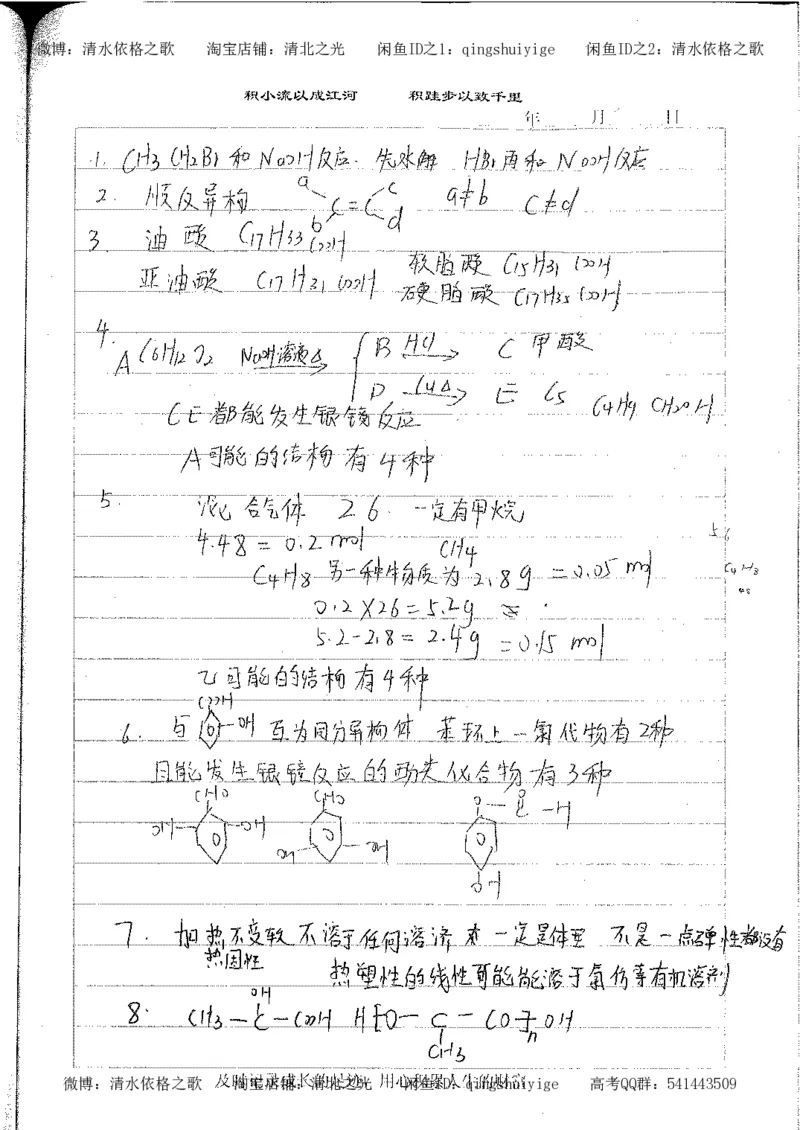 微博：清水依格之歌 淘宝店铺：清北之光 闲鱼ID之1：qingshuiyige 闲鱼ID之2：清水依格之歌
积小流以成江河 积跬步以致千里
年 月 日
1. CH3CH2Br 和 NaOH反应. 先水解 HBr再和 NaOH反应
2. 顺反异构 a b C=C c d a≠b C≠d
3. 油酸 C17H33COOH
软脂酸 C15H31COOH
亚油酸 C17H31COOH
硬脂酸 C17H35COOH
4.
A C6H12O2 NaOH溶液△ B HCl C 甲酸
D Cu△ E C5 C4H9 CH2OH
C E都能发生银镜反应
A可能的结构有4种
5. 混合气体 26. 一定有甲烷
4.48=0.2mol CH4
56
C4H8 另一种物质为2.8g =0.05mol
C4H8
0.2×26=5.2g
5.2-2.8=2.4g =0.15mol
乙可能的结构有4种
COOH
6. 与 OH 互为同分异构体 苯环上一氯代物有2种
且能发生银镜反应的酚类化合物有3种
CHO CHO O-C-H O
OH OH OH OH OH
7. 加热不变软 不溶于任何溶济 一定是体型 不是一点弹性都没有
热固性 热塑性的线性可能能溶于氯仿等有机溶剂
8. CH3-C-COOH OH H[O-C-CO]nOH
CH3
微博：清水依格之歌 淘宝店铺：清北之光 闲鱼ID：qingshuiyige 高考QQ群：541443509